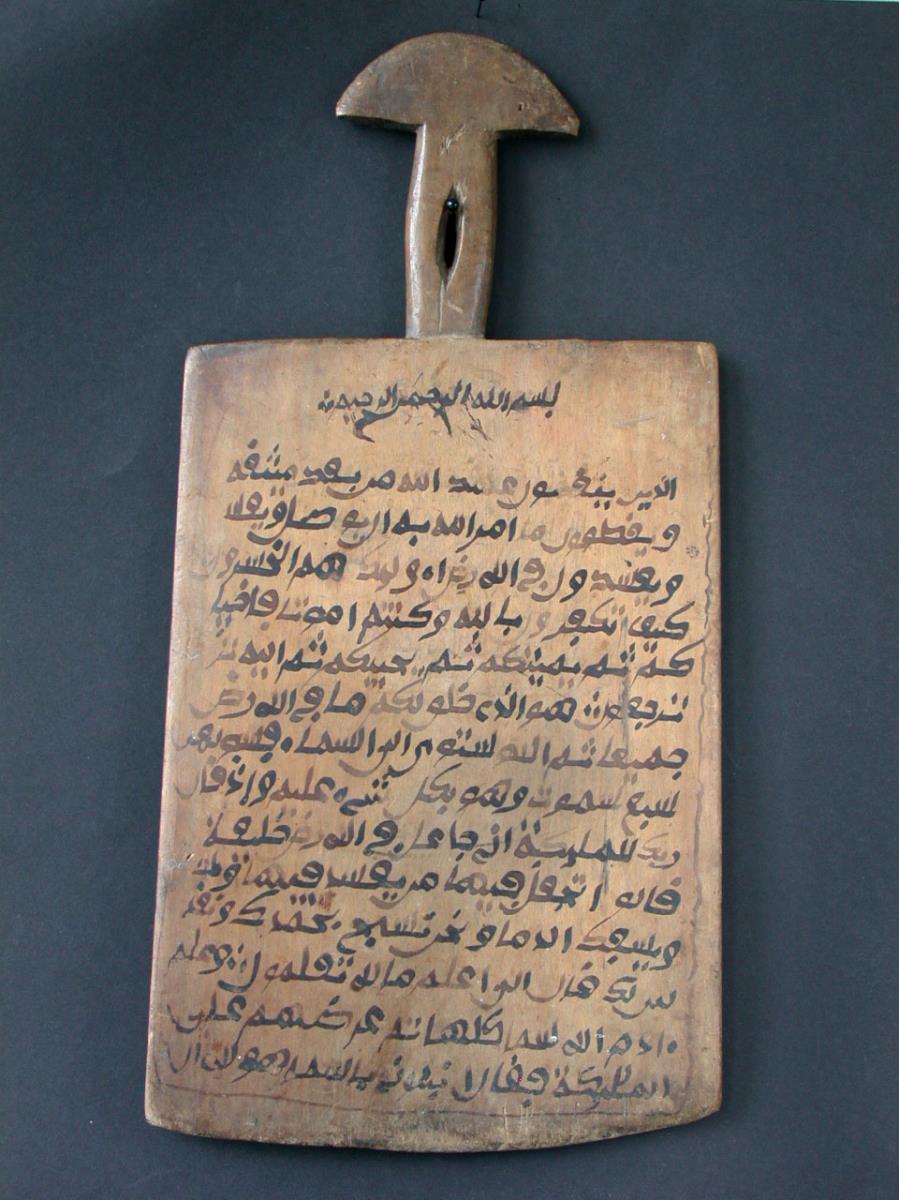 بسم الله الرحمن الرحيم
الذين ينقضون عهد الله من بعد ميثقه
و يقطعون ما امر الله به ان يو صل و يفسد
ويفسدون في الله رض اولىك هم الخسرون
كيف تكفرون بالله وكنتم اموتا فاحيا
كم ثم يميتكم ثم يحييكم ثم اليه تر
ترجعون هو الذي خلق لكم ما في الله رض
جميعا ثم الله ستوى الى السماء فسويهن
سبع سموت وهو بكل شيء عليم واذ قال
ربك للملىكة اني جاعل في الله رض خليفة
قالو اتجعل فيها من يفسد فيها
ويسفك الدما و نحن نسبح بحمدك ونقد
س لك قال اني اعلم ما لا تعلمون وعلم
ءادم الاسما كلها ثم عرضهم على
الملىكة فقال انبـوني باسما هولا ان